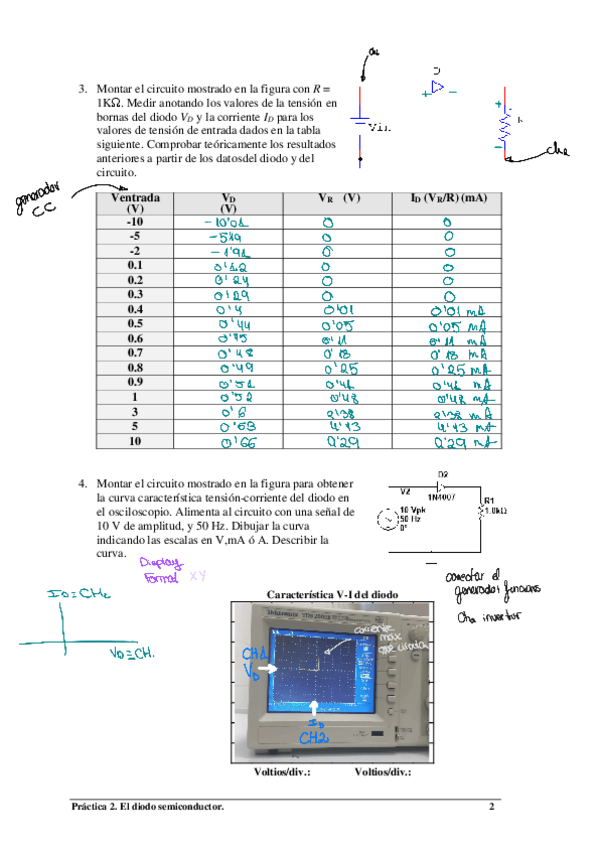 3. Montar el circuito mostrado en la figura con R =
1KΩ. Medir anotando los valores de la tensión en
bornas del diodo VD y la corriente ID para los
valores de tensión de entrada dados en la tabla
siguiente. Comprobar teóricamente los resultados
anteriores a partir de los datosdel diodo y del
circuito.
D
+ -
Vin
+
-
generador
CC
Ventrada (V) VD (V) VR (V) ID (VR/R) (mA)
-10 -10'01 0 0
-5 0 0
-2 -1'91 0 0
0.1 0'12 0 0
0.2 0'24 0 0
0.3 0'29 0 0
0.4 0'4 0'01 0'01 mA
0.5 0'44 0'05 0'05 mA
0.6 0'11 0'11 mA
0.7 0'48 0'18 0'18 mA
0.8 0'49 0'25 0'25 mA
0.9
1 0'52 0'48 0'48 mA
3 0'6 2'38 2'38 mA
5 4'43 4'43 mA
10 0'66 9'29 9'29 mA
4. Montar el circuito mostrado en la figura para obtener
la curva característica tensión-corriente del diodo en
el osciloscopio. Alimenta al circuito con una señal de
10 V de amplitud, y 50 Hz. Dibujar la curva
indicando las escalas en V,mA ó A. Describir la
curva.
D2
V2
1N4007
R1
10 Vpk
1.0kΩ
50 Hz
0°
Display
Format XY
conectar el
generador funciones
invertor
ID=CH2
VD=CH1
Característica V-I del diodo
Tektronix
corriente
max
CH1
VD
ID
CH2
Voltios/div.: Voltios/div.:
Práctica 2. El diodo semiconductor. 2